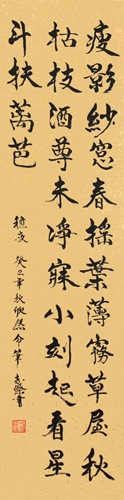 瘦影紗窓春搖葉薄霧草屋秋
枯枝酒尊未凈寐小刻起看星
斗扶蓠芭
穐夜 癸巳年秋 然命筆 志 書